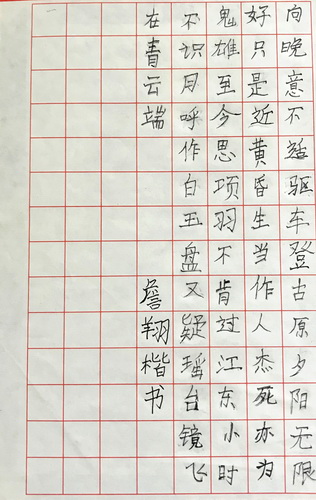 向晚意不适驱车登古原夕阳无限
好只是近黄昏生当作人杰死亦为
鬼雄至今思项羽不肯过江东小时
不识月呼作白玉盘又疑瑶台镜飞
在青云端 詹翔楷书